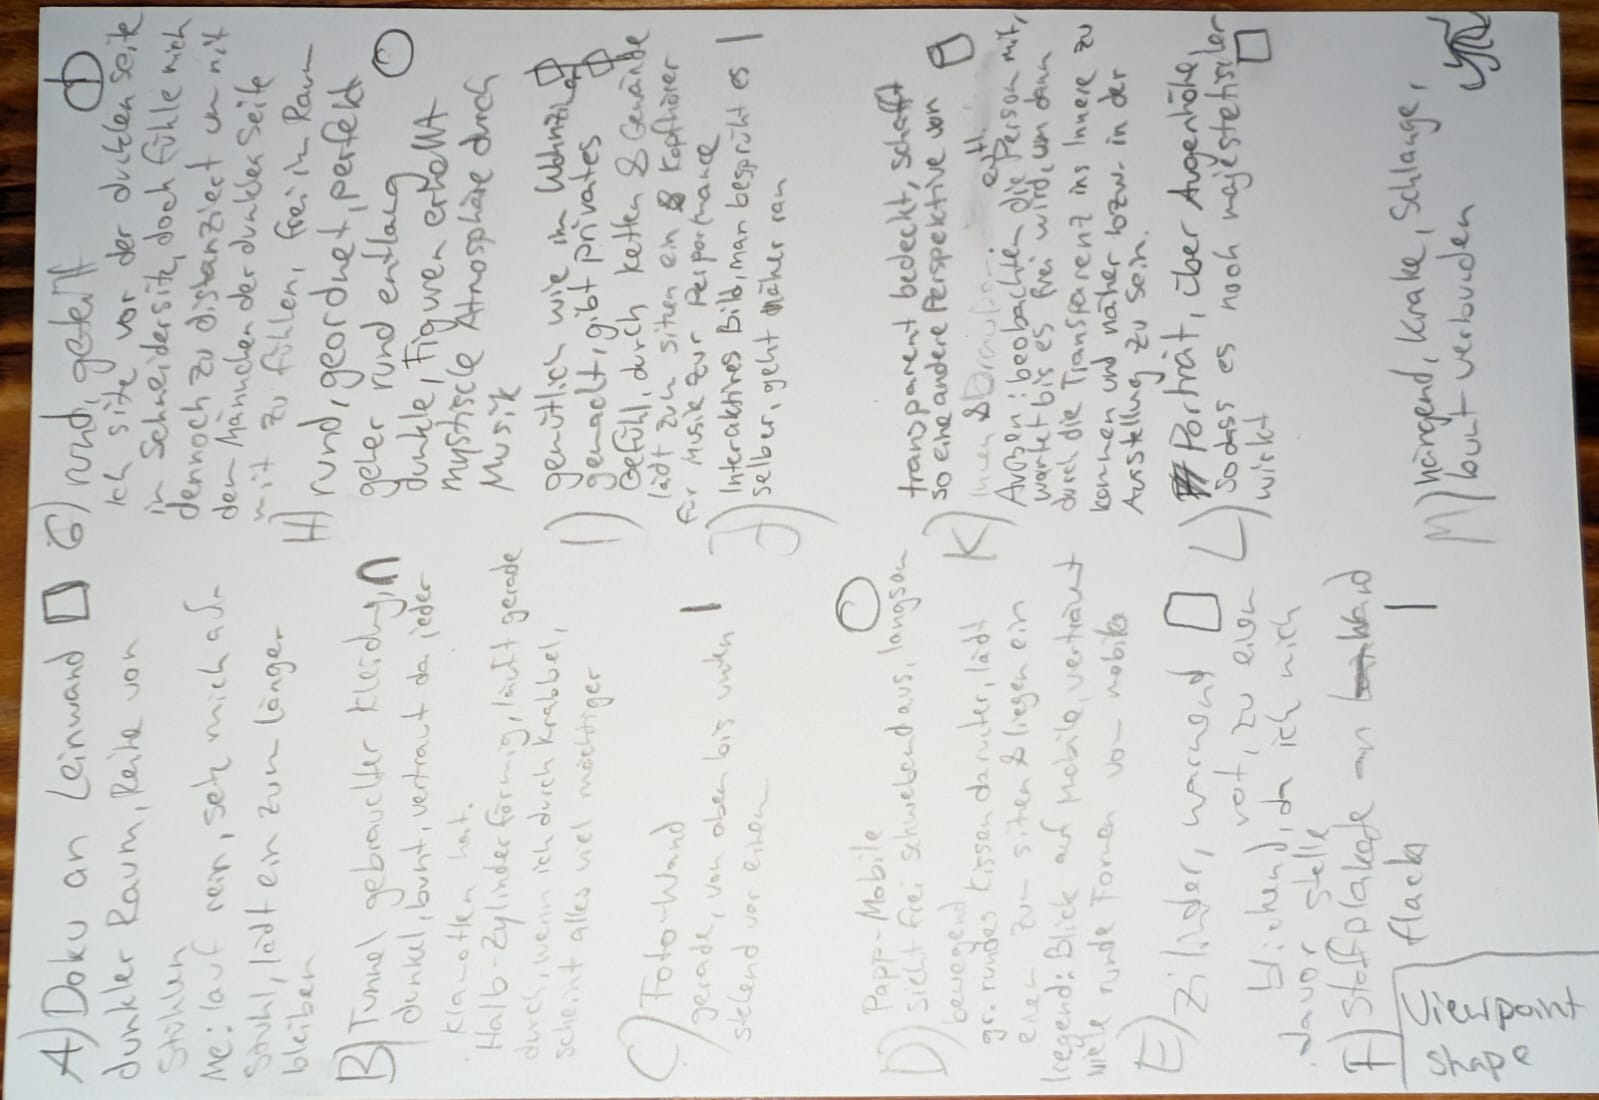 A) Doku an Leinwand
dunkler Raum, Reihe von
Stühlen
Me: lauf rein, setz mich auf
Stuhl, lädt ein zum länger
bleiben
B) Tunnel gebrauchter Kleidung,
dunkel, bunt, vertraut da jeder
Klamotten hat.
Halb-Zylinderförmig, läuft gerade
durch, wenn ich durch krabbel,
scheint alles viel mächtiger
C) Foto-Wand
gerade, von oben bis unten
stehend vor einem
D) Papp-Mobile
sieht frei schwebend aus, langsam
bewegend
gr. rundes Kissen darunter, lädt
einen zum sitzen & liegen ein
liegend: Blick auf Mobile, verträumt
viele runde Formen vom mobile
E) Zilinder, warnend
rot, zu einem
blickend, da ich mich
davor stelle
F) Stoffplakate an Wand
flach
Viewpoint
Shape
G) rund, geteilt
Ich sitze vor der dunklen Seite
im Schneidersitz, doch fühle mich
dennoch zu distanziert um mit
den Männchen der dunklen Seite
mit zu fühlen, frei im Raum
H) rund, geordnet, perfekt
gehe rund entlang
dunkle, Figuren erhellt
Mystische Atmosphäre durch
Musik
I) gemütlich wie im Wohnzimmer
gemacht, gibt privates
Gefühl, durch Ketten & Gewände
lädt zum sitzen ein & Kopfhörer
für Musik zur Performance
J) Interaktives Bild, man besprüht es
selber, geht näher ran
K) transparent bedeckt, schafft
so eine andere Perspektive von
Innen & Draußen.
Außen: beobachten die Person mit,
wartet bis es frei wird, um dann
durch die Transparenz ins Innere zu
kommen und näher bzw. in der
Ausstellung zu sein.
L) Porträt, über Augenhöhe,
sodass es noch majestetischer
wirkt
M) hängend, Krake, Schlange,
bunt verbunden